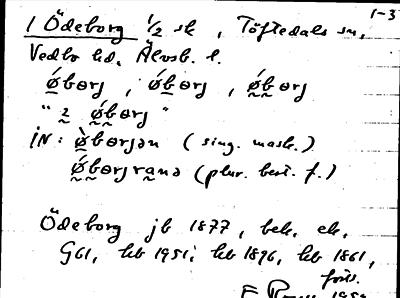 1-3
1 Ödeborg 1/2 sk, Töftedals sn,
Vedbo hd, Älvsb. l.
ǿbɵrj, ǿbɵrj, ǿbɵrj
" 2 ǿbɵrj "
iN: ø̀bɵrjən (sing. mask.)
ǿbɵrjrana (plur. best. f.)
Ödeborg jb 1877, beb. eb,
G61, kb 1951; kb 1896, kb 1861,
forts.